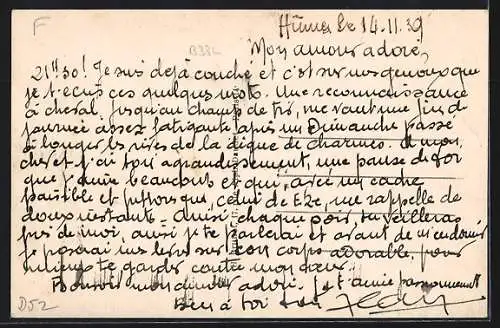 F
B33L
le 14.11.39
Mon amour adoré,
21h30! Je suis déjà couché et c'est sur mes genoux que
je t'écris ces quelques mots. Une reconnaissance
à cheval, jusqu'au champ de tir, me vaut une fin de
journée assez fatigante après un Dimanche passé
à longer les rives de la digue de charmes. A mon
chevet j'ai ton agrandissement, une pause de toi
que j'aime beaucoup et qui, avec un cadre
paisible et , celui de Eze, me rappelle de
doux instants. Ainsi chaque soir tu veilleras
près de moi, ainsi je te parlerai et avant de m'endormir
je poserai mes lèvres sur ton corps adorable, pour
mieux te garder contre mon cœur.
Bonsoir mon amour adoré. Je t'aime passionnément
bien à toi ton
D52